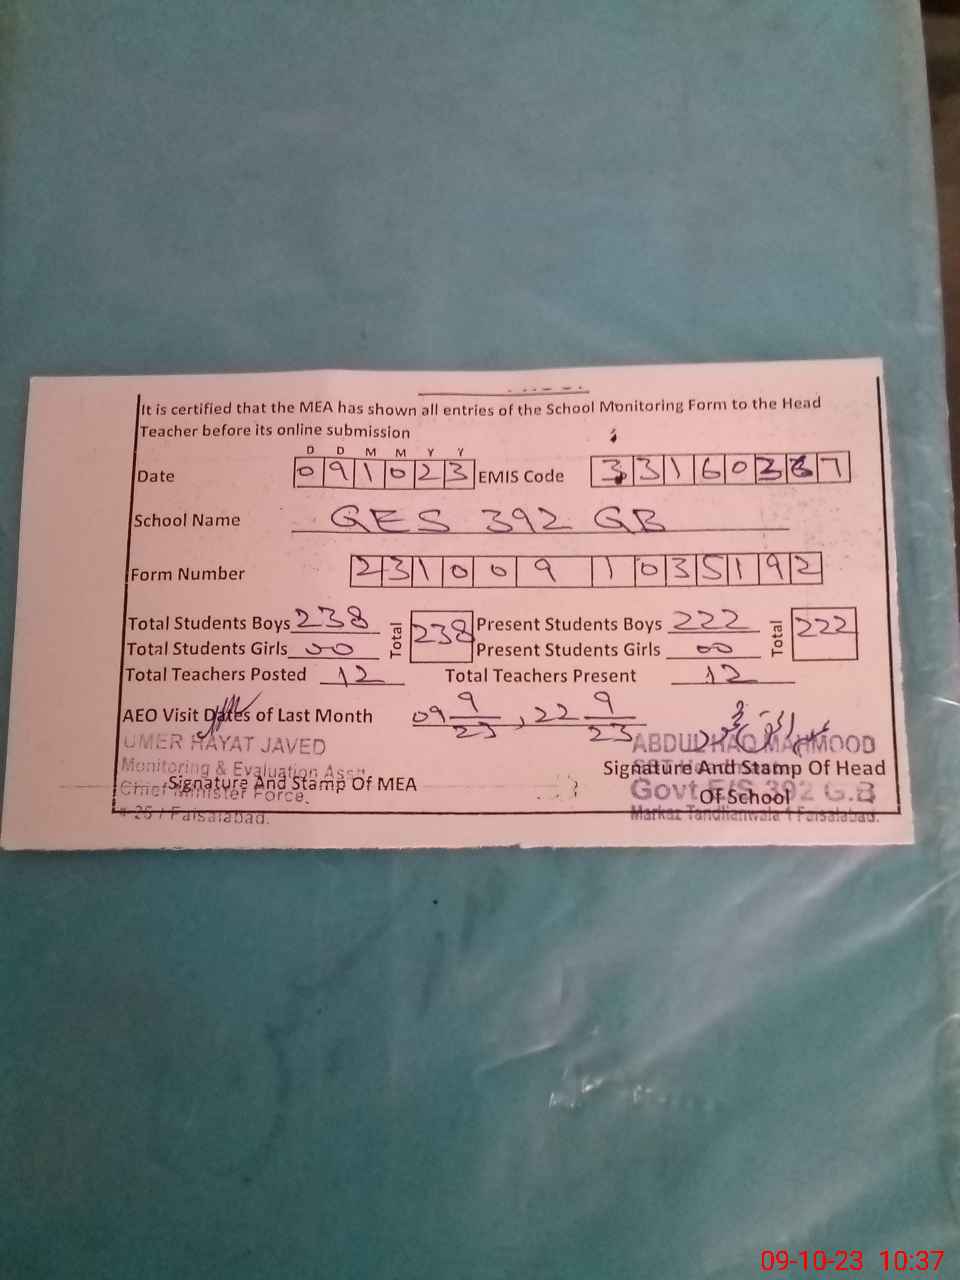 It is certified that the MEA has shown all entries of the School Monitoring Form to the Head
Teacher before its online submission
D D M M Y Y
Date 091023 EMIS Code 331603 7
School Name GES 392 GB
Form Number 2310091035192
Total Students Boys 238 Total 238 Present Students Boys 222 Total 222
Total Students Girls 00 Present Students Girls 00
Total Teachers Posted 12 Total Teachers Present 12
AEO Visit Dates of Last Month 09 9/23, 22 9/23
UMER HAYAT JAVED ABDUL HAQ MAHMOOD
Monitoring & Evaluation Asstt
Signature And Stamp Of MEA Signature And Stamp Of Head
Chief Minister Force. Of School
Govt. E/S 392 G.B
Faisalabad. Markaz Tandlianwala 1 Faisalabad.
09-10-23 10:37